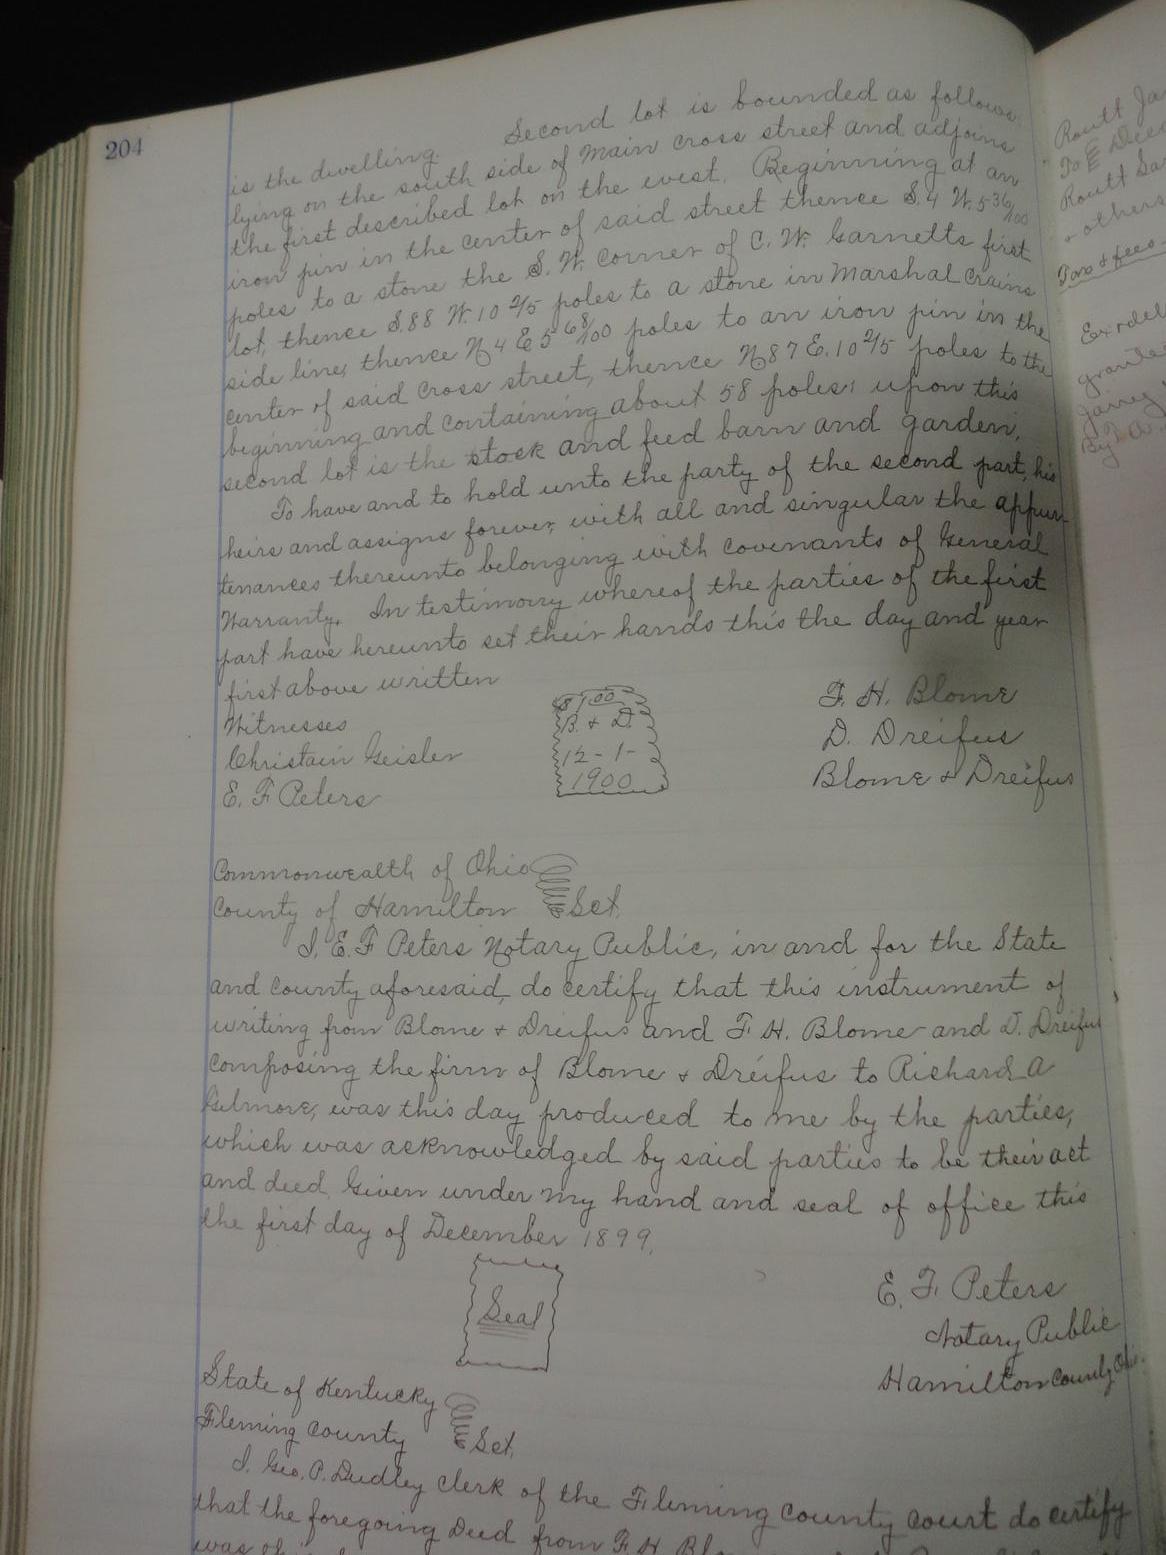 204
is the dwelling. Second lot is bounded as follows
lying on the south side of Main Cross street and adjoins
the first described lot on the west. Beginning at an
iron pin in the center of said street thence S. 4 W. 5 36/100
poles to a stone the S. W. Corner of C. W. Garnetts first
lot, thence S. 88 W. 10 2/5 poles to a stone in Marshal Crains
side line, thence N 4 E 5 68/100 poles to an iron pin in the
center of said cross street, thence N 87 E. 10 2/5 poles to the
beginning and containing about 58 poles, upon this
second lot is the stock and feed barn and garden,
To have and to hold unto the party of the second part, his
heirs and assigns forever, with all and singular the appur-
tenances thereunto belonging with covenants of General
Warranty. In testimony whereof the parties of the first
part have hereunto set their hands this the day and year
first above written
Witnesses
Christain Geisler
E. F Peters
$1.00
B. & D.
12-1-
1900
F. H. Blome
D. Dreifus
Blome & Dreifus
Commonwealth of Ohio
County of Hamilton Sct.
I, E. F Peters Notary Public, in and for the State
and County aforesaid, do certify that this instrument of
writing from Blome & Dreifus and F H. Blome and D. Dreifus
composing the firm of Blome & Dreifus to Richard A
Gilmore, was this day produced to me by the parties,
which was acknowledged by said parties to be their act
and deed. Given under my hand and seal of office this
the first day of December 1899.
Seal
E. F. Peters
Notary Public
Hamilton County Oh.
State of Kentucky
Fleming County Sct.
I. Geo. P. Dudley Clerk of the Fleming County Court do certify
that the foregoing Deed from F. H Blo
was
Routt Ja
To Deed
Routt Sa
& others
Tax & fees